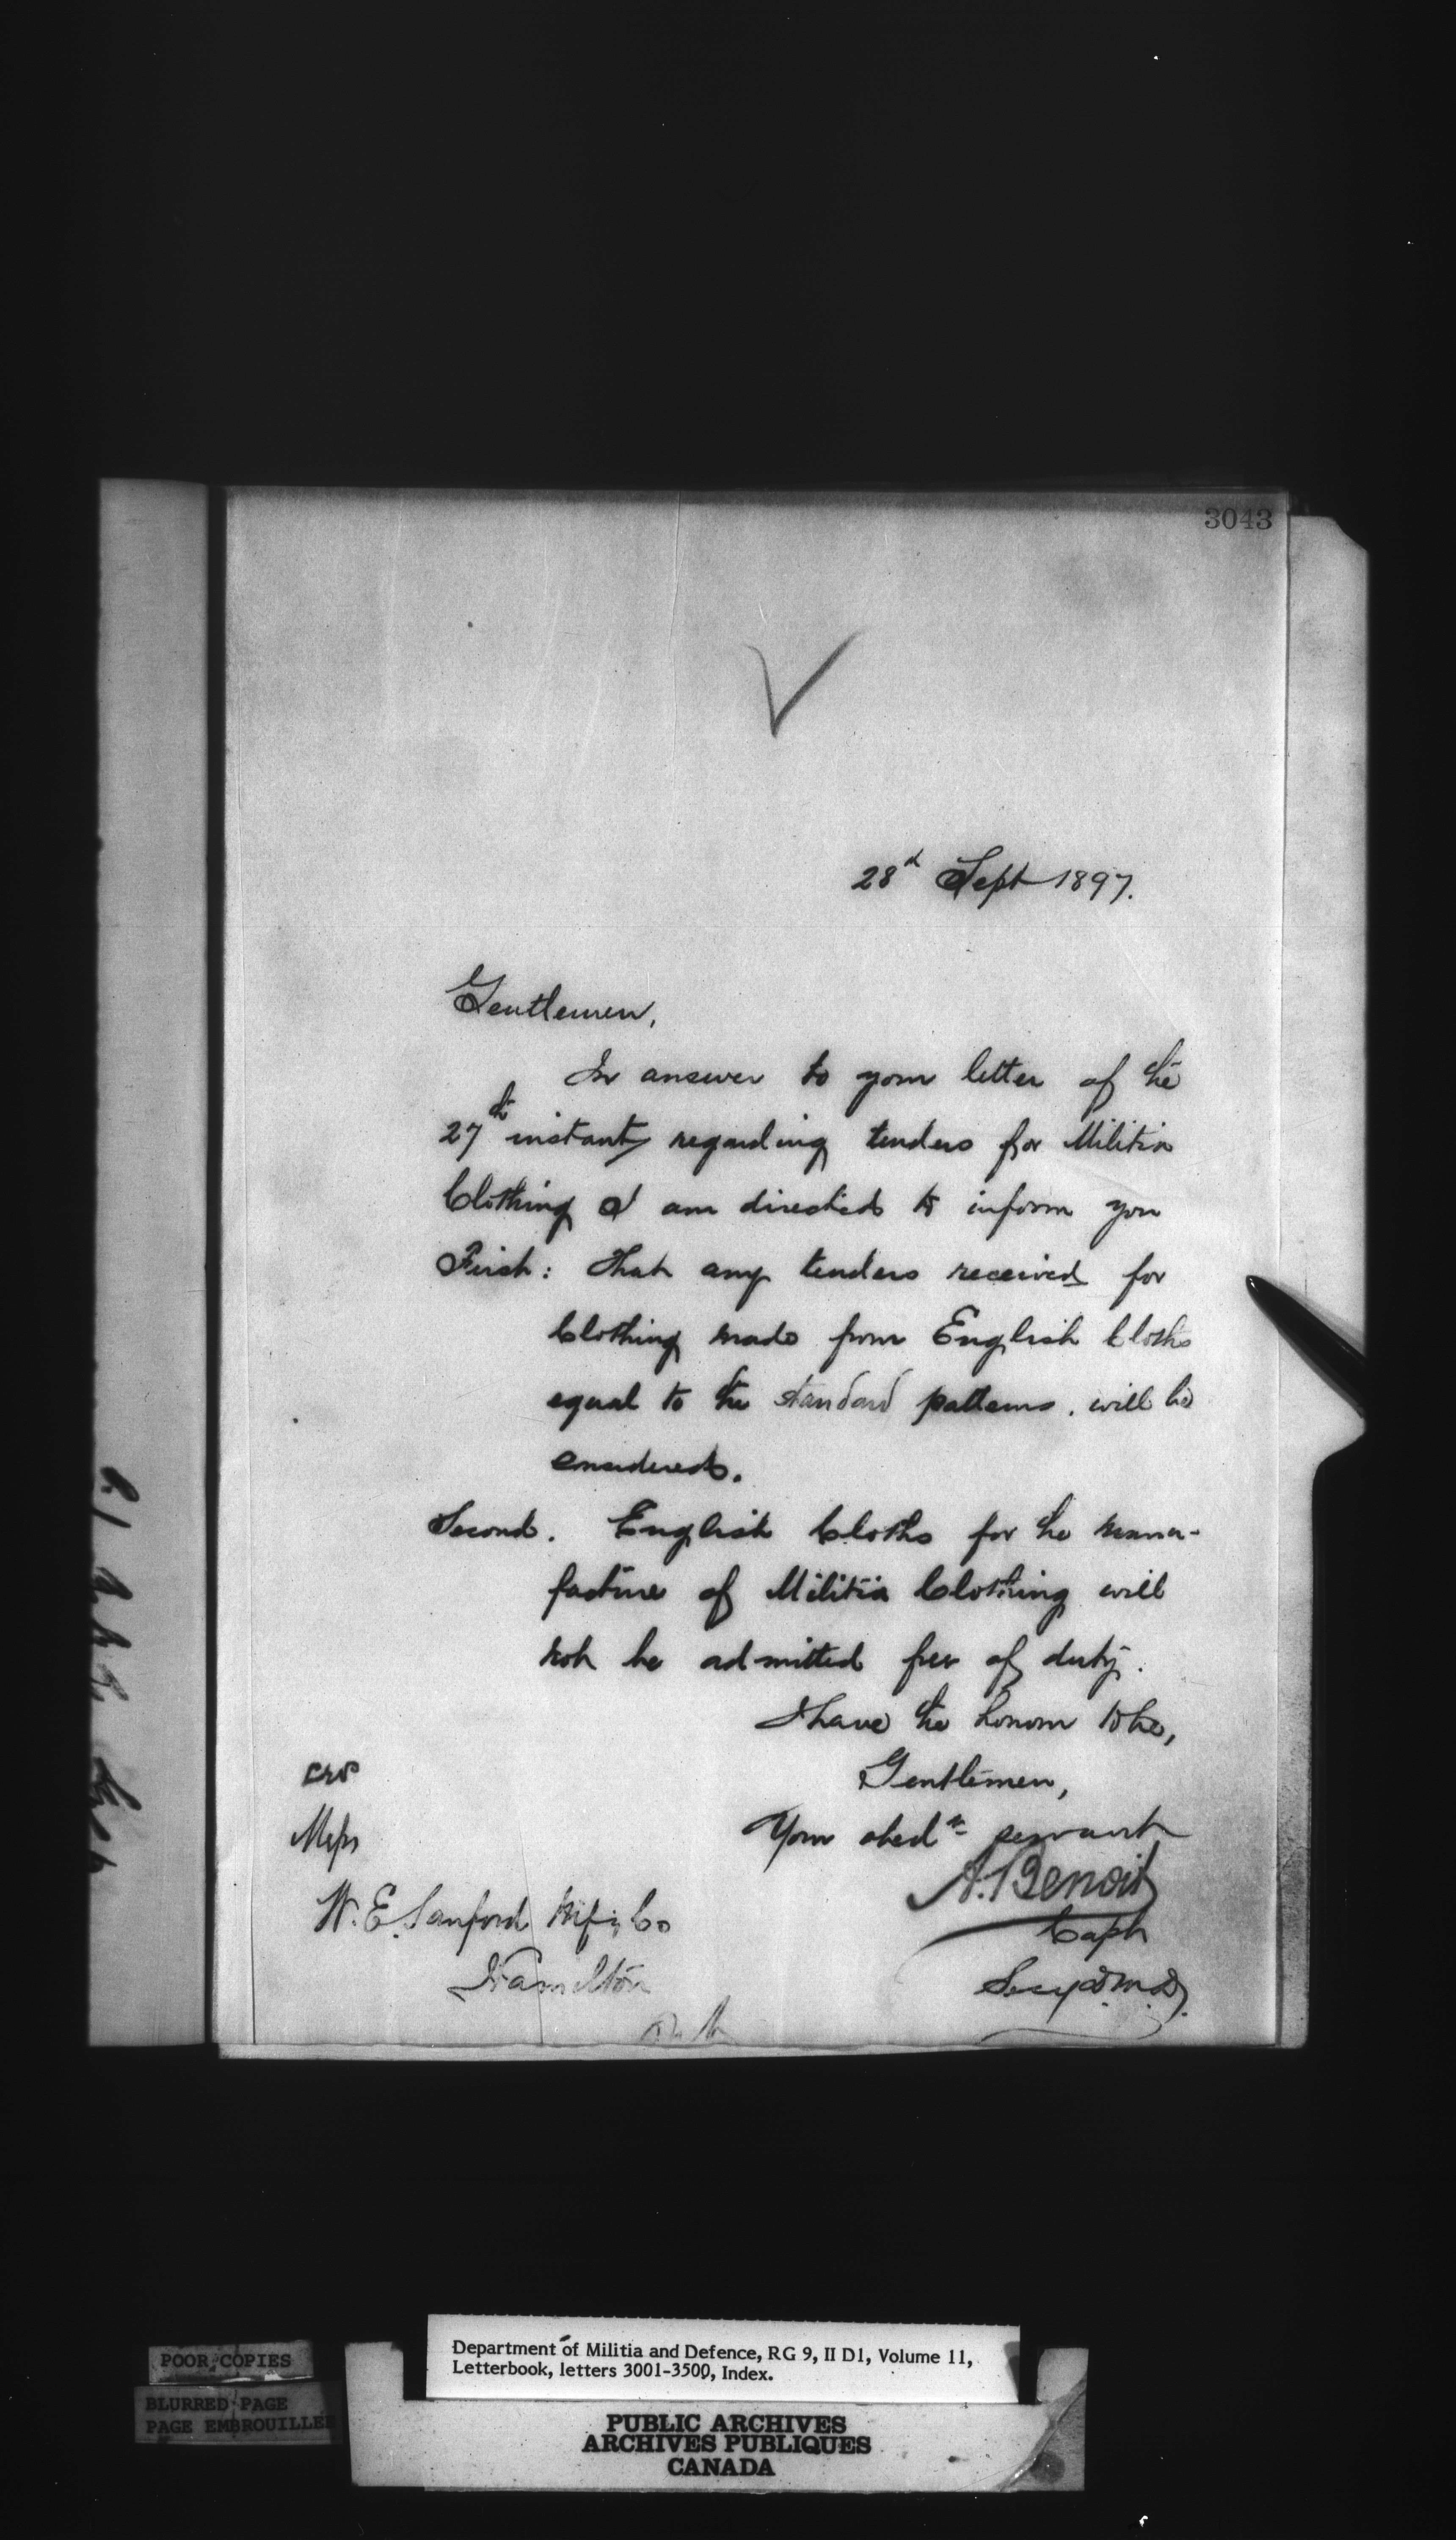 3043
28d Sept 1897.
Gentlemen,
In answer to your letter of the
27th instant regarding tenders for Militia
Clothing I am directed to inform you
First: That any tenders received for
Clothing made from English Cloths
equal to the standard patterns. will be
considered.
Second. English Cloths for the manu-
facture of Militia Clothing will
not be admitted free of duty.
I have the honour to be,
Gentlemen,
Your obedt servant
A. Benoit
Capt
Secy D.M.D.
Messrs
W. E. Sanford Mfg Co
Hamilton
Department of Militia and Defence, RG 9, II D1, Volume 11,
Letterbook, letters 3001-3500, Index.
POOR COPIES
BLURRED PAGE
PAGE EMBROUILLEE
PUBLIC ARCHIVES
ARCHIVES PUBLIQUES
CANADA